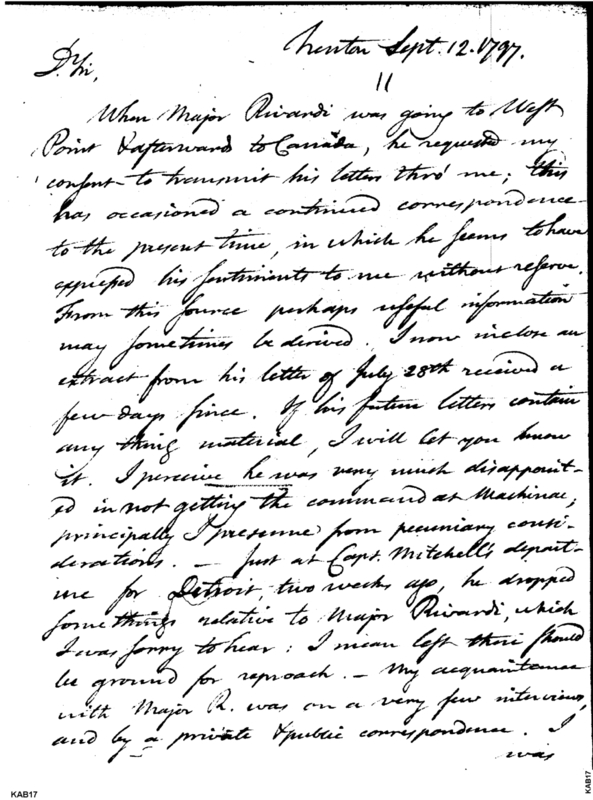 Trenton Sept. 12. 1797.
Dr. Sir,
When Major Rivardi was going to West
Point & afterwards to Canada, he requested my
consent to transmit his letters thro' me; this
has occasioned a continued correspondence
to the present time, in which he seems to have
expressed his sentiments to me without reserve.
From this source perhaps useful information
may sometimes be derived. I now inclose an
extract from his letter of July 28th received a
few days since. If his future letters contain
any thing material, I will let you know
it. I perceive he was very much disappoint-
ed in not getting the command at Mackinac;
principally I presume from pecuniary consi-
derations. — Just at Capt. Mitchell's depart-
ure for Detroit, two weeks ago, he dropped
some things relative to Major Rivardi, which
I was sorry to hear: I mean lest there should
be ground for reproach. — My acquaintance
with Major R. was on a very few interviews,
and by a private & public correspondence. I
was
KAB17
KAB17